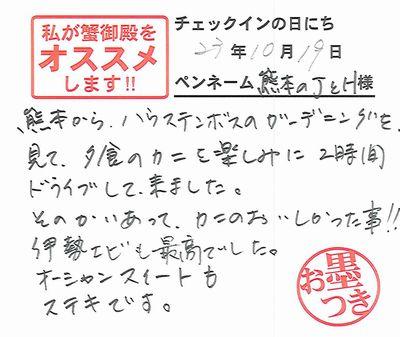 私が蟹御殿を
オススメ
します!!
チェックインの日にち
23年10月19日
ペンネーム 熊本のJとH様
熊本から、ハウステンボスのガーデニングを、
見て、夕食のカニを楽しみに2時間
ドライブして、来ました。
そのかいあって、カニのおいしかった事!!
伊勢エビも最高でした。
オーシャンスイートも
ステキです。
お墨
つき